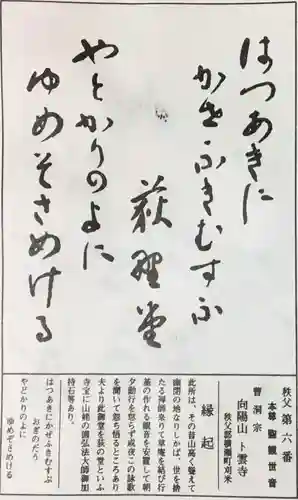 はつあきに
かせふきむすふ
荻野堂
やとかりのよに
ゆめそさめける
秩父第六番
本尊 聖觀世音
曹洞宗
向陽山卜雲寺
秩父郡横瀬町苅米
縁起
此所は、その昔山高く聳えて
幽閑の地なりしかば、世を捨
たる禅師来りて草庵を結び行
基の作れる観音を安置して朝
夕勤行を怠らず或夜この詠歌
を聞いて忽ち悟るところあり
夫より此御堂を荻の堂といふ
寺宝に山姥の歯弘法大師御加
持石等あり。
はつあきにかぜふきむすぶ
おぎのだう
やどかりのよに
ゆめぞさめける